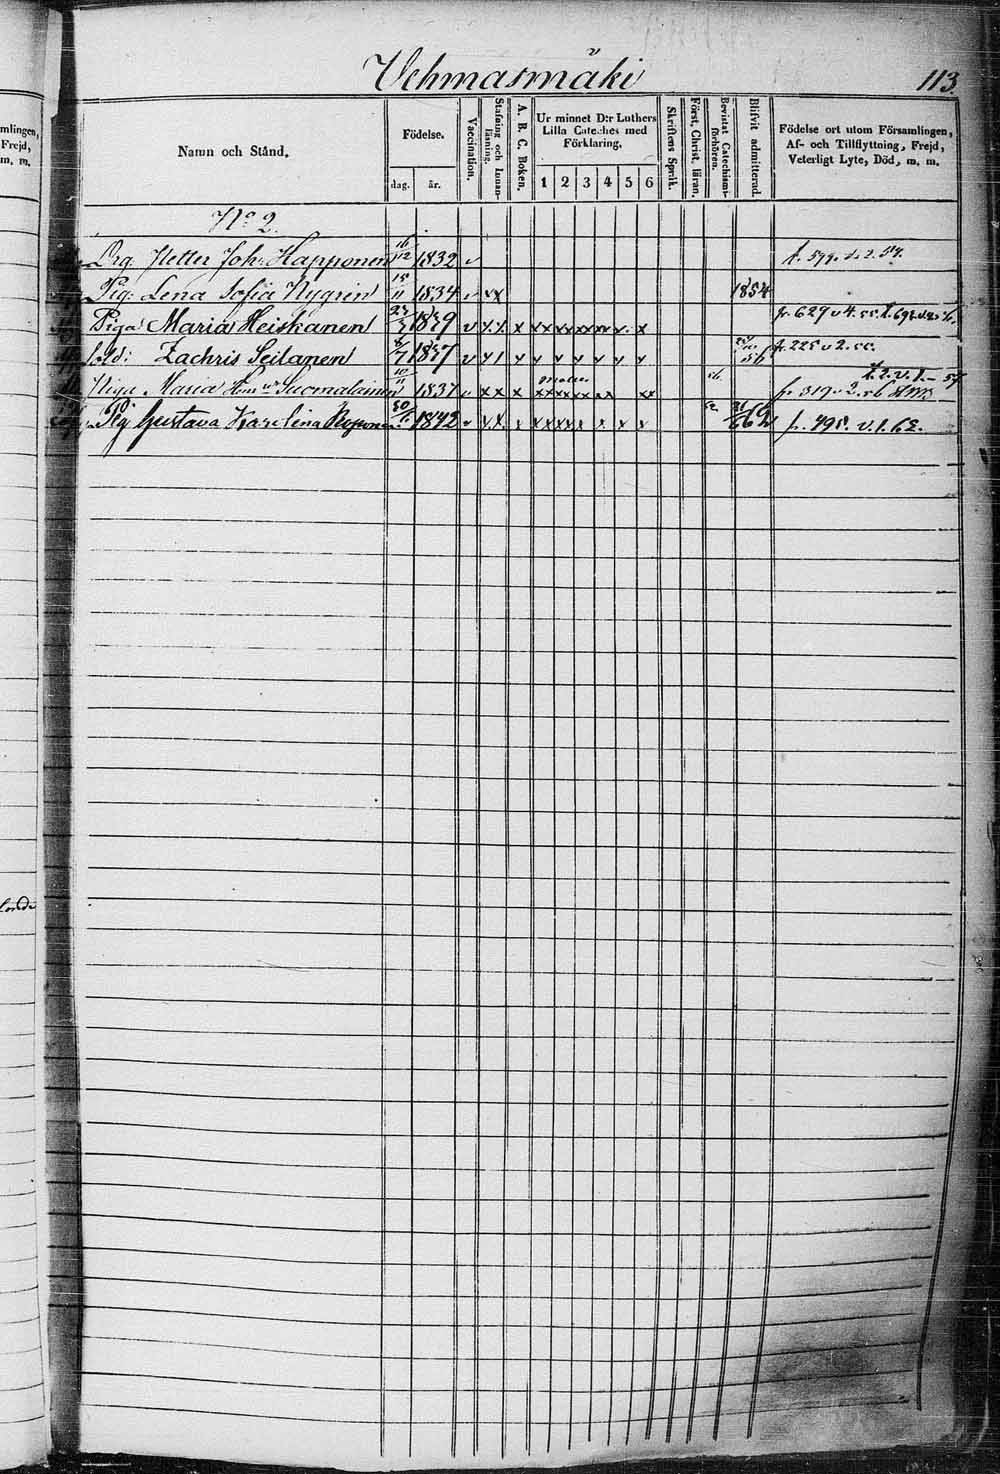 Vehmasmäki 113.
mlingen,
Frejd,
m, m,
Namn och Stånd.
Födelse.
dag. år.
Vaccination.
Stafning och Innanläsning.
A. B. C. Boken.
Ur minnet D:r Luthers
Lilla Cateches med
Förklaring.
1 2 3 4 5 6
Skriftens Språk.
Först. Christ. läran.
Bevistat Catechismiförhören.
Blifvit admitterad.
Födelse ort utom Församlingen,
Af- och Tillflyttning, Frejd,
Veterligt Lyte, Död, m. m.
No 2.
Drg: Petter Joh: Happonen 16/12 1832 v t. 599. v. 2. 57.
Pig: Lena Sofia Nygrén 15/11 1834 v x x 1854
Piga Maria Heiskanen 23/3 1839 v x x x x x x x x x fr. 629 v 4. 55.
Sold: Zachris Seilanen 6/7 1837 v 56 fr. 225 v 2. 55.
Piga Maria Suomalainen 10/11 1837 v x x x 56. fr. 319 v 2. 56
t. 2. v. 1. 57
Pig Gustava Karolina 30/1 1842 v x x x x x x x 62. fr. 495. v. 1. 62.